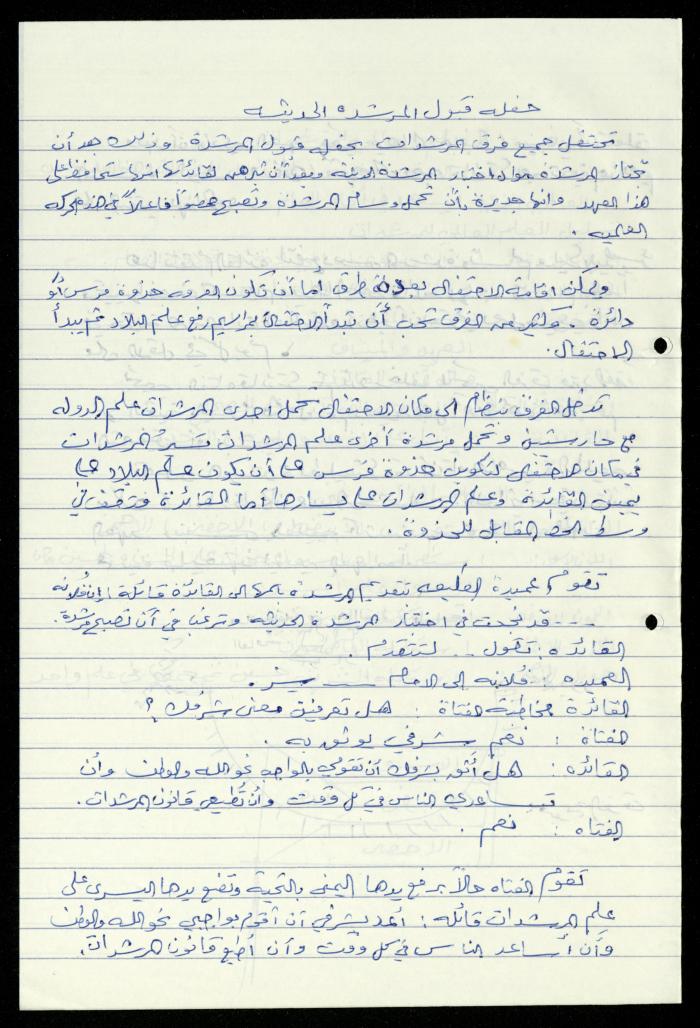 حفله قبول المرشده الحديثه
تحتفل جميع فرق المرشدات بحفلة قبول المرشدة. وذلك بعد أن
تجتاز المرشدة مواد اختبار المرشدة الحديثة وبعد أن تبرهن لقائدتها انها ستحافظ على
هذا العهد. وانها جديرة بأن تحمل وسام المرشدة وتصبح عضواً فاعلاً في هذه الحركه
العالميه.
ويمكن اقامة الاحتفال بعدة طرق أما أن تكون الفرقه حذوة فرس أو
دائرة. وكثير من الفرق تحب أن تبدأ الاحتفال بمراسيم رفع علم البلاد ثم يبدأ
الاحتفال.
تدخل الفرق بنظام الى مكان الاحتفال تحمل احدى المرشدات علم الدوله
مع حارستين وتحمل مرشدة أخرى علم المرشدات وتسير المرشدات
في مكان الاحتفال لتكوين حذوة فرس على أن يكون علم البلاد على
يمين القائدة وعلم المرشدات على يسارها أما القائدة فتقف في
وسط الخط المقابل للحذوة.
تقوم عميدة الطليعه بتقديم المرشدة باسمها الى القائدة قائلة: إن فلانه
.... قد نجحت في اختبار المرشدة الحديثه وترغب في أن تصبح مرشدة.
القائده: تقول .. لتتقدم.
العميده: فلانه الى الامام ــــ سر.
القائدة مخاطبة الفتاة: هل تعرفين معنى شرفك؟
الفتاة: نعم شرفي يوثق به.
القائده: هل أثق بشرفك أن تقومي بالواجب نحو الله والوطن وأن
تساعدي الناس في كل وقت وأن تطيعي قانون المرشدات.
الفتاه: نعم.
تقوم الفتاه حالاً برفع يدها اليمنى بالتحية وتضع يدها اليسرى على
علم المرشدات قائله: أعد بشرفي أن أقوم بواجبي نحو الله والوطن
وأن أساعد الناس في كل وقت وأن أطيع قانون المرشدات.